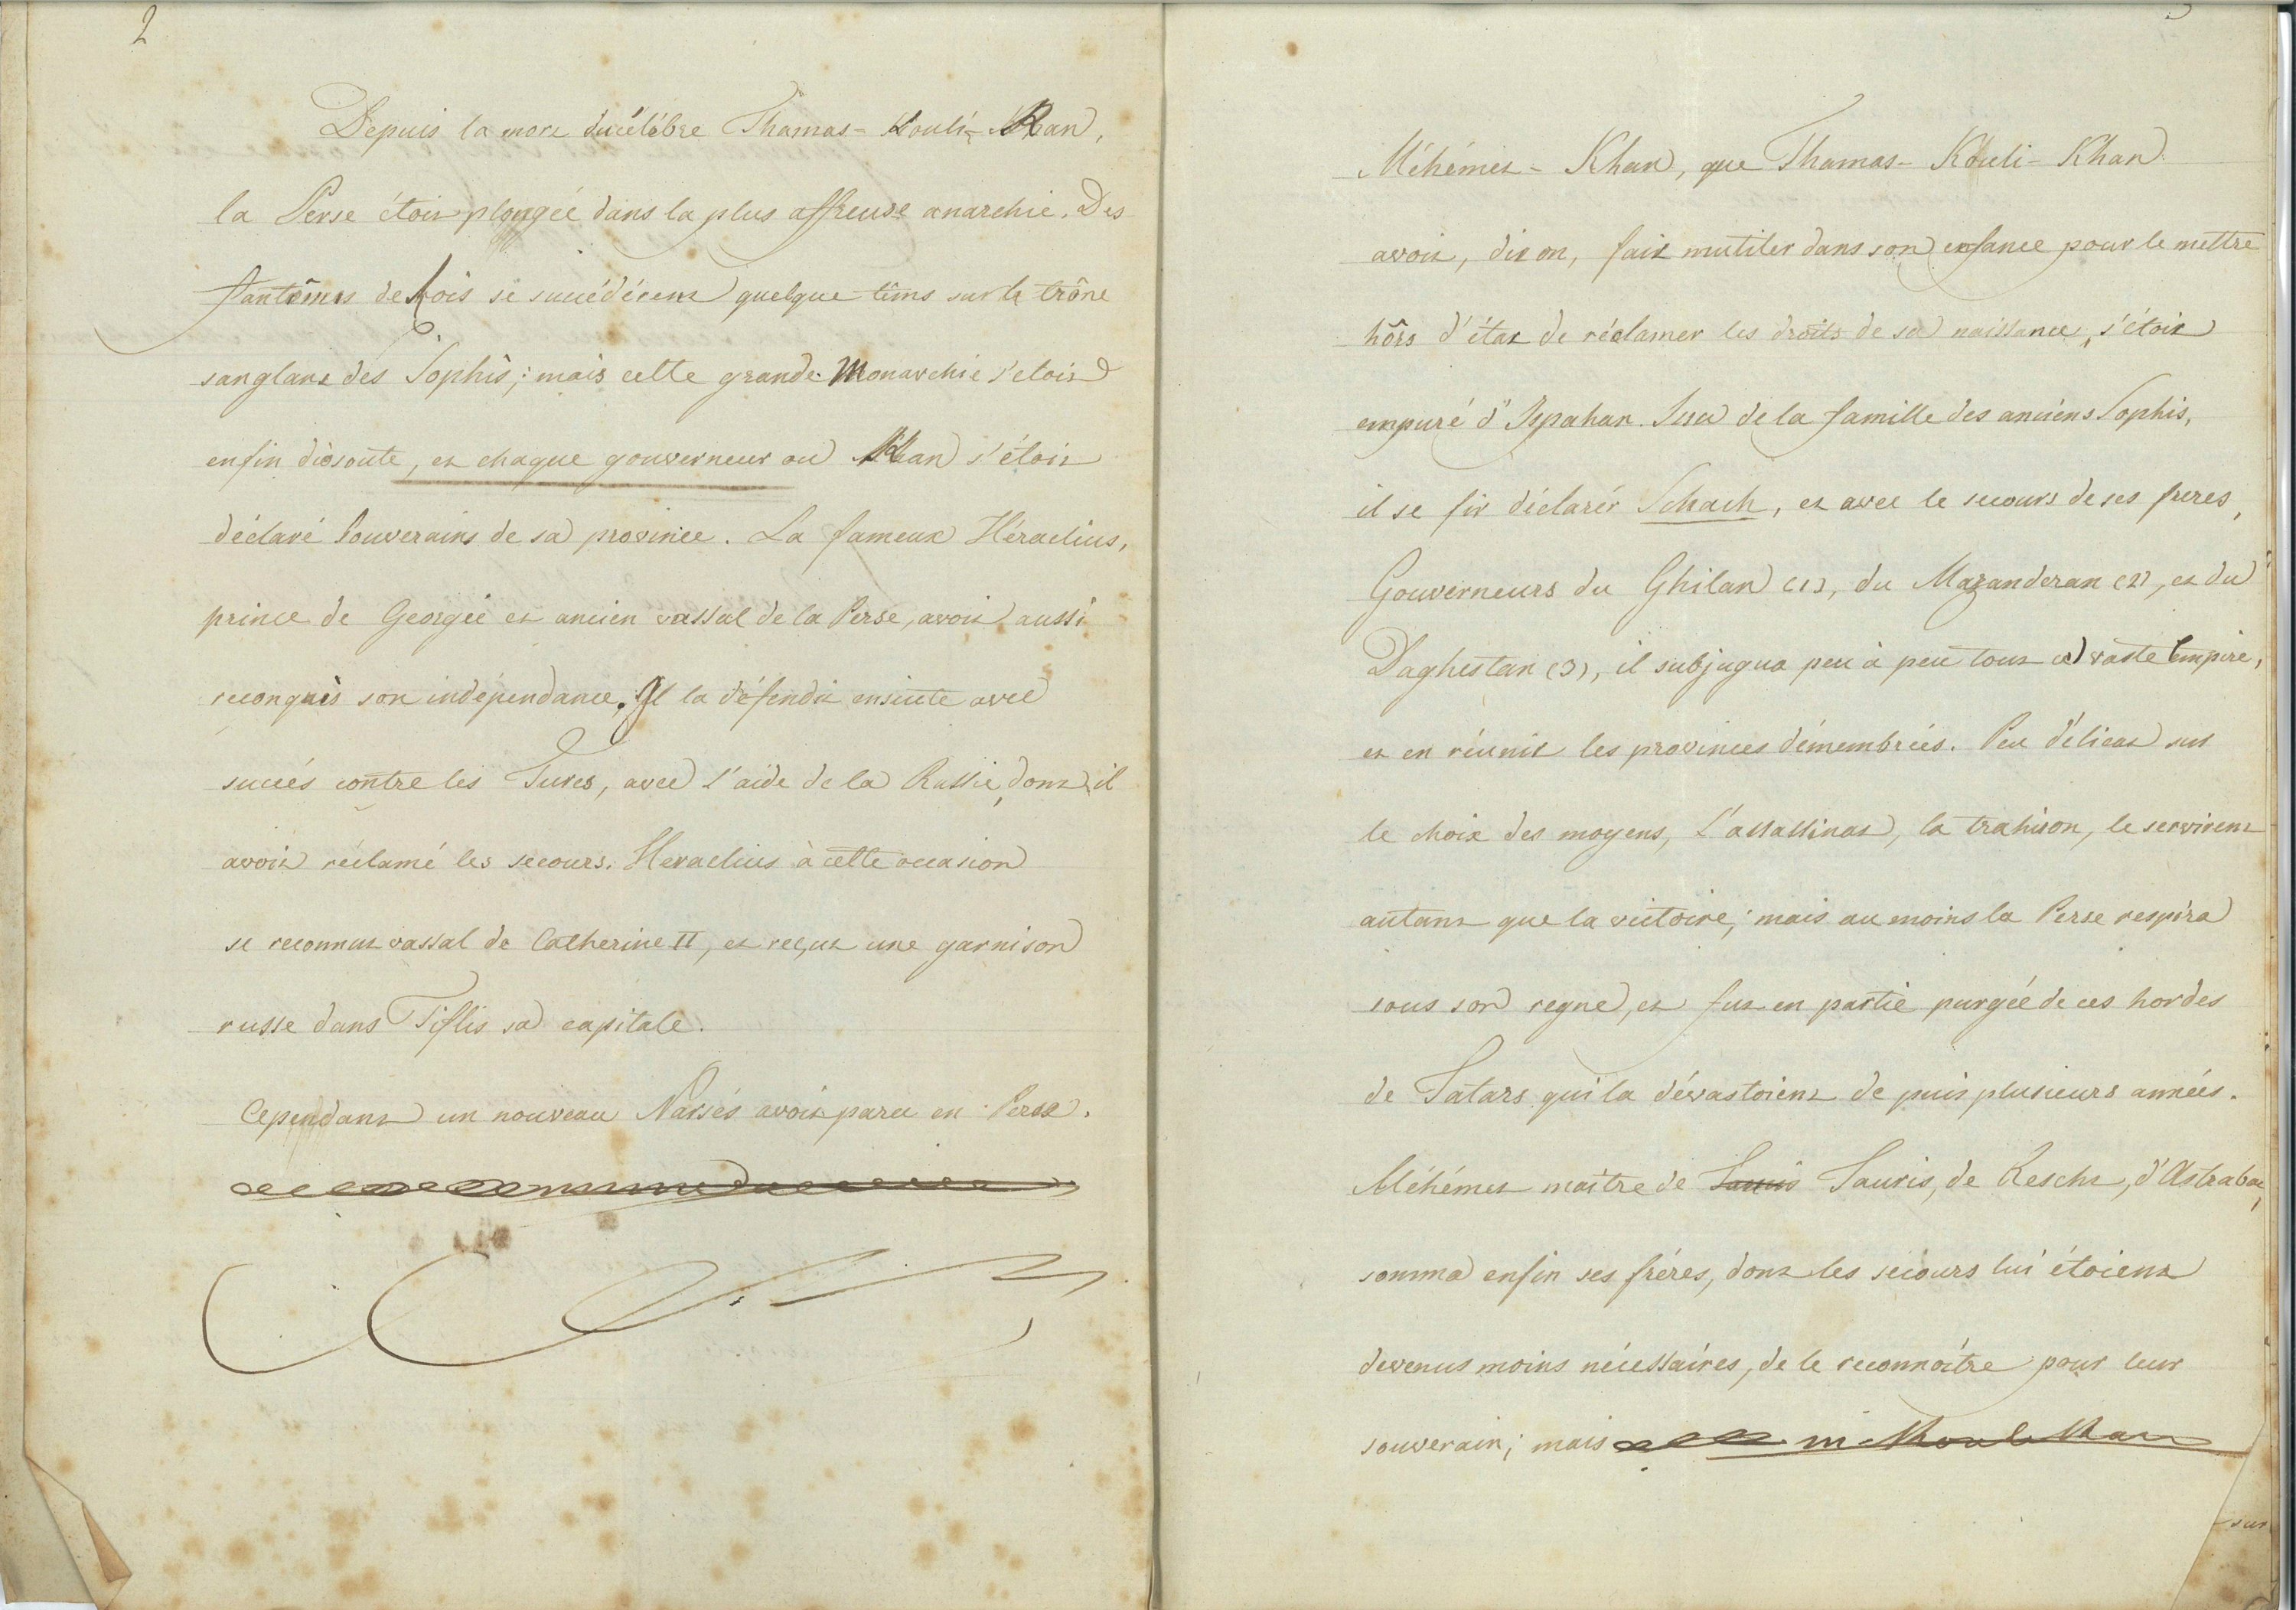 2
Depuis la mort du célèbre Thamas-Kouli-Khan,
la Perse étoit plongée dans la plus affreuse anarchie. Des
fantômes de Rois se succédèrent quelque tems sur le trône
sanglant des Sophis; mais cette grande Monarchie s'etoit
enfin dissoute, et chaque gouverneur ou Khan s'étoit
déclaré Souverains de sa province. Le fameux Héraclius,
prince de Georgie et ancien vassal de la Perse, avoit aussi
reconquis son indépendance. Il la défendit ensuite avec
succés contre les Turcs, avec l'aide de la Russie, dont il
avoit réclamé les secours. Heraclius à cette occasion
se reconnut vassal de Catherine II, et reçut une garnison
russe dans Tiflis sa capitale.
Cependant un nouveau Narsés avoit paru en Perse.
Méhémet-Khan, que Thamas-Kouli-Khan
avoit, dit on, fait mutiler dans son enfance pour le mettre
hôrs d'état de réclamer les droits de sa naissance, s'étoit
emparé d'Ispahan. Issu de la famille des anciens Sophis,
il se fit déclarér Schach, et avec le secours de ses freres,
Gouverneurs du Ghilan (1), du Mazanderan (2), et du
Daghestan (3), il subjugua peu à peu tout ce vaste Empire,
et en réunit les provinces démembrées. Peu délicat sur
le choix des moyens, l'assassinat, la trahison, le servirent
autant que la victoire; mais au moins la Perse respira
sous son regne, et fut en partie purgée de ces hordes
de Tatars qui la dévastoient de puis plusieurs années.
Méhémet maître de Tauris, de Rescht, d'Astrabat,
somma enfin ses fréres, dont les secours lui étoient
devenus moins nécessaires, de le reconnoître pour leur
souverain; mais
sur